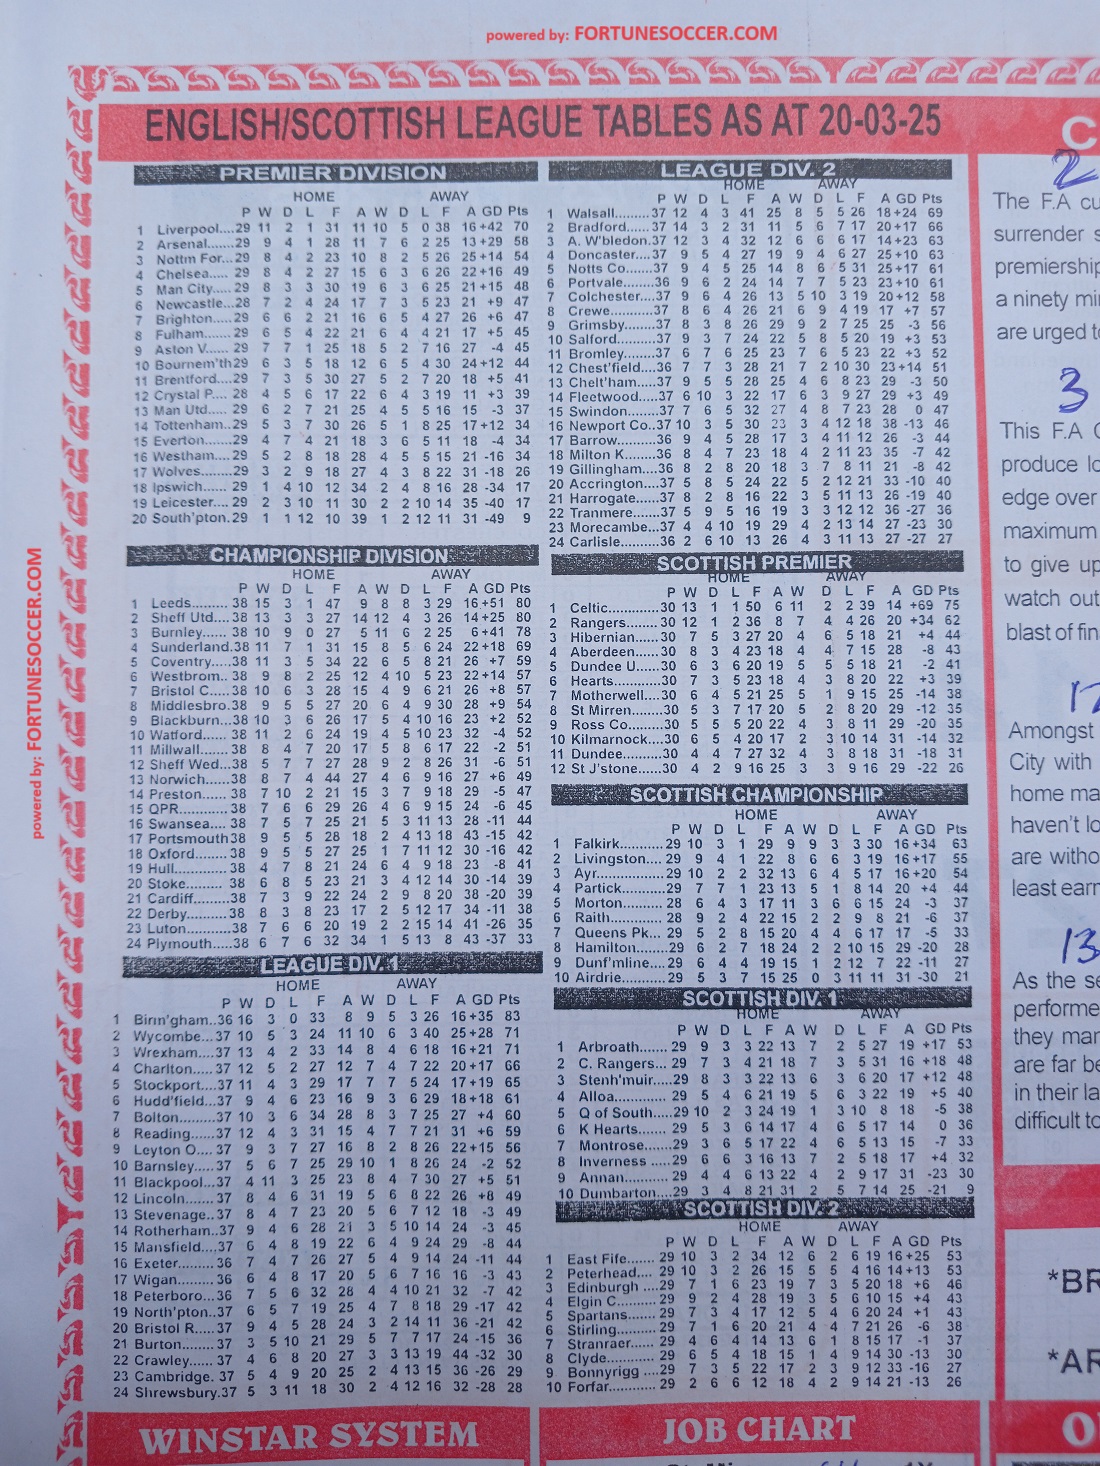 powered by: FORTUNESOCCER.COM
ENGLISH/SCOTTISH LEAGUE TABLES AS AT 20-03-25
PREMIER DIVISION
HOME AWAY
P W D L F A W D L F A GD Pts
1 Liverpool....29 11 2 1 31 11 10 5 0 38 16 +42 70
2 Arsenal.....29 9 4 1 28 11 7 6 2 25 13 +29 58
3 Nottm For...29 8 4 2 23 10 8 2 5 26 25 +14 54
4 Chelsea.....29 8 4 2 27 15 6 3 6 26 22 +16 49
5 Man City....29 8 3 3 30 19 6 3 6 25 21 +15 48
6 Newcastle...28 7 2 4 24 17 7 3 5 23 21 +9 47
7 Brighton....29 6 6 2 21 16 6 5 4 27 26 +6 47
8 Fulham......29 6 5 4 22 21 6 4 4 21 17 +5 45
9 Aston V.....29 7 7 1 25 18 5 2 7 16 27 -4 45
10 Bournem'th29 6 3 5 18 12 6 5 4 30 24 +12 44
11 Brentford...29 7 3 5 30 27 5 2 7 20 18 +5 41
12 Crystal P....28 4 5 6 17 22 6 4 3 19 11 +3 39
13 Man Utd....29 6 2 7 21 25 4 5 5 16 15 -3 37
14 Tottenham..29 5 3 7 30 26 5 1 8 25 17 +12 34
15 Everton.....29 4 7 4 21 18 3 6 5 11 18 -4 34
16 Westham....29 5 2 8 18 28 4 5 5 15 21 -16 34
17 Wolves......29 3 2 9 18 27 4 3 8 22 31 -18 26
18 Ipswich.....29 1 4 10 12 34 2 4 8 16 28 -34 17
19 Leicester...29 2 3 10 11 30 2 2 10 14 35 -40 17
20 South'pton.29 1 1 12 10 39 1 2 12 11 31 -49 9
CHAMPIONSHIP DIVISION
HOME AWAY
P W D L F A W D L F A GD Pts
1 Leeds.........38 15 3 1 47 9 8 8 3 29 16 +51 80
2 Sheff Utd....38 13 3 3 27 14 12 4 3 26 14 +25 80
3 Burnley......38 10 9 0 27 5 11 6 2 25 6 +41 78
4 Sunderland.38 11 7 1 31 15 8 5 6 24 22 +18 69
5 Coventry.....38 11 3 5 34 22 6 5 8 21 26 +7 59
6 Westbrom..38 9 8 2 25 12 4 10 5 23 22 +14 57
7 Bristol C....38 10 6 3 28 15 4 9 6 21 26 +8 57
8 Middlesbro.38 9 5 5 27 20 6 4 9 30 28 +9 54
9 Blackburn...38 10 3 6 26 17 5 4 10 16 23 +2 52
10 Watford.....38 11 2 6 24 19 4 5 10 23 32 -4 52
11 Millwall.....38 8 4 7 20 17 5 8 6 17 22 -2 51
12 Sheff Wed...38 5 7 7 27 28 9 2 8 26 31 -6 51
13 Norwich.....38 8 7 4 44 27 4 6 9 16 27 +6 49
14 Preston.....38 7 10 2 21 15 3 7 9 18 29 -5 47
15 QPR..........38 7 6 6 29 26 4 6 9 15 24 -6 45
16 Swansea....38 7 5 7 25 21 5 3 11 13 28 -11 44
17 Portsmouth38 9 5 5 28 18 2 4 13 18 43 -15 42
18 Oxford......38 9 5 5 27 25 1 7 11 12 30 -16 42
19 Hull..........38 4 7 8 21 24 6 4 9 18 23 -8 41
20 Stoke.......38 6 8 5 23 21 3 4 12 14 30 -14 39
21 Cardiff......38 7 3 9 22 24 2 9 8 20 38 -20 39
22 Derby.......38 8 3 8 23 17 2 5 12 17 34 -11 38
23 Luton.......38 7 6 6 20 19 2 2 15 14 41 -26 35
24 Plymouth...38 6 7 6 32 34 1 5 13 8 43 -37 33
LEAGUE DIV. 1
HOME AWAY
P W D L F A W D L F A GD Pts
1 Birm'gham..36 16 3 0 33 8 9 5 3 26 16 +35 83
2 Wycombe...37 10 5 3 24 11 10 6 3 40 25 +28 71
3 Wrexham....37 13 4 2 33 14 8 4 6 18 16 +21 71
4 Charlton....37 12 5 2 27 12 7 4 7 22 20 +17 66
5 Stockport...37 11 4 3 29 17 7 7 5 24 17 +19 65
6 Hudd'field...37 9 4 6 23 16 9 3 6 29 18 +18 61
7 Bolton.......37 10 3 6 34 28 8 3 7 25 27 +4 60
8 Reading.....37 12 4 3 31 15 4 7 7 21 31 +6 59
9 Leyton O....37 9 3 7 27 16 8 2 8 26 22 +15 56
10 Barnsley....37 5 6 7 25 29 10 1 8 26 24 -2 52
11 Blackpool...37 4 11 3 25 23 8 4 7 30 27 +5 51
12 Lincoln......37 8 4 6 31 19 5 6 8 22 26 +8 49
13 Stevenage..37 8 4 7 23 20 5 6 7 12 18 -3 49
14 Rotherham..37 9 4 6 28 21 3 5 10 14 24 -3 45
15 Mansfield....37 6 4 8 19 22 6 4 9 24 29 -8 44
16 Exeter.......36 7 4 7 26 27 5 4 9 14 24 -11 44
17 Wigan.......36 6 4 8 17 20 5 6 7 16 16 -3 43
18 Peterboro...36 7 5 6 32 28 4 4 10 21 32 -7 42
19 North'pton..37 6 5 7 19 25 4 7 8 18 29 -17 42
20 Bristol R.....37 9 4 5 28 24 3 2 14 11 36 -21 42
21 Burton.......37 3 5 10 21 29 5 7 7 17 24 -15 36
22 Crawley.....37 4 6 8 20 27 3 3 13 19 44 -32 30
23 Cambridge.37 5 4 9 20 25 2 4 13 15 36 -26 29
24 Shrewsbury.37 5 3 11 18 30 2 4 12 16 32 -28 28
WINSTAR SYSTEM
LEAGUE DIV. 2
HOME AWAY
P W D L F A W D L F A GD Pts
1 Walsall.........37 12 4 3 41 25 8 5 5 26 18 +24 69
2 Bradford......37 14 3 2 31 11 5 6 7 17 20 +17 66
3 A. W'bledon.37 12 3 4 32 12 6 6 6 17 14 +23 63
4 Doncaster....37 9 5 4 27 19 9 4 6 27 25 +10 63
5 Notts Co.....37 9 4 5 25 14 8 6 5 31 25 +17 61
6 Portvale.....36 9 6 2 24 14 7 7 5 23 23 +10 61
7 Colchester...37 9 6 4 26 13 5 10 3 19 20 +12 58
8 Crewe........37 8 6 4 26 21 6 9 4 19 17 +7 57
9 Grimsby.....37 8 3 8 26 29 9 2 7 25 25 -3 56
10 Salford......37 9 3 7 24 22 5 8 5 20 19 +3 53
11 Bromley.....37 6 7 6 25 23 7 6 5 23 22 +3 52
12 Chest'field...36 7 7 3 28 21 7 2 10 30 23 +14 51
13 Chelt'ham...37 9 5 5 28 25 4 6 8 23 29 -3 50
14 Fleetwood....37 6 10 3 22 17 6 3 9 27 29 +3 49
15 Swindon.....37 7 6 5 32 27 4 8 7 23 28 0 47
16 Newport Co..37 10 3 5 30 23 3 4 12 18 38 -13 46
17 Barrow.......36 9 4 5 28 17 3 4 11 12 26 -3 44
18 Milton K.....36 8 4 7 23 18 4 2 11 23 35 -7 42
19 Gillingham...36 8 2 8 20 18 3 7 8 11 21 -8 42
20 Accrington..37 5 8 5 24 22 5 2 12 21 33 -10 40
21 Harrogate...37 8 2 8 16 22 3 5 11 13 26 -19 40
22 Tranmere...37 5 9 5 16 19 3 3 12 12 36 -27 36
23 Morecambe..37 4 4 10 19 29 4 2 13 14 27 -23 30
24 Carlisle......36 2 6 10 13 26 4 3 11 13 27 -27 27
SCOTTISH PREMIER
HOME AWAY
P W D L F A W D L F A GD Pts
1 Celtic...........30 13 1 1 50 6 11 2 2 39 14 +69 75
2 Rangers.......30 12 1 2 36 8 7 4 4 26 20 +34 62
3 Hibernian.....30 7 5 3 27 20 4 6 5 18 21 +4 44
4 Aberdeen.....30 8 3 4 23 18 4 4 7 15 28 -8 43
5 Dundee U....30 6 3 6 20 19 5 5 5 18 21 -2 41
6 Hearts........30 7 3 5 23 18 4 3 8 20 22 +3 39
7 Motherwell....30 6 4 5 21 25 5 1 9 15 25 -14 38
8 St Mirren.....30 5 3 7 17 20 5 2 8 20 29 -12 35
9 Ross Co......30 5 5 5 20 22 4 3 8 11 29 -20 35
10 Kilmarnock....30 6 5 4 20 17 2 3 10 14 31 -14 32
11 Dundee.......30 4 4 7 27 32 4 3 8 18 31 -18 31
12 St J'stone.....30 4 2 9 16 25 3 3 9 16 29 -22 26
SCOTTISH CHAMPIONSHIP
HOME AWAY
P W D L F A W D L F A GD Pts
1 Falkirk..........29 10 3 1 29 9 9 3 3 30 16 +34 63
2 Livingston....29 9 4 1 22 8 6 6 3 19 16 +17 55
3 Ayr..............29 10 2 2 32 13 6 4 5 17 16 +20 54
4 Partick........29 7 7 1 23 13 5 1 8 14 20 +4 44
5 Morton........28 6 4 3 17 11 3 6 6 15 24 -3 37
6 Raith..........28 9 2 4 22 15 2 2 9 8 21 -6 37
7 Queens Pk...29 5 2 8 15 20 4 4 6 17 17 -5 33
8 Hamilton.....29 6 2 7 18 24 2 2 10 15 29 -20 28
9 Dunf'mline....29 6 4 4 19 15 1 2 12 7 22 -11 27
10 Airdrie.......29 5 3 7 15 25 0 3 11 11 31 -30 21
SCOTTISH DIV. 1
HOME AWAY
P W D L F A W D L F A GD Pts
1 Arbroath.......29 9 3 3 22 13 7 2 5 27 19 +17 53
2 C. Rangers...29 7 3 4 21 18 7 3 5 31 16 +18 48
3 Stenh'muir....29 8 3 3 22 13 6 3 6 20 17 +12 48
4 Alloa..........29 5 4 6 21 19 5 6 3 22 19 +5 40
5 Q of South...29 10 2 3 24 19 1 3 10 8 18 -5 38
6 K Hearts.....29 5 3 6 14 17 4 6 5 17 14 0 36
7 Montrose.....29 3 6 5 17 22 4 6 5 13 15 -7 33
8 Inverness.....29 6 6 3 16 13 7 2 5 18 17 +4 32
9 Annan........29 4 4 6 13 22 4 2 9 17 31 -23 30
10 Dumbarton...29 3 4 8 21 31 2 5 7 14 25 -21 9
SCOTTISH DIV. 2
HOME AWAY
P W D L F A W D L F A GD Pts
1 East Fife......29 10 3 2 34 12 6 2 6 19 16 +25 53
2 Peterhead....29 10 3 2 26 15 5 5 4 16 14 +13 53
3 Edinburgh....29 7 1 6 23 19 7 3 5 20 18 +6 46
4 Elgin C.......29 9 2 4 28 19 3 5 6 10 15 +4 43
5 Spartans......29 7 3 4 17 12 5 4 6 20 24 +1 43
6 Stirling.......29 7 1 6 20 21 4 4 7 21 26 -6 38
7 Stranraer.....29 4 6 4 14 13 6 1 8 15 17 -1 37
8 Clyde.........29 6 5 4 18 15 1 4 9 14 30 -13 30
9 Bonnyrigg....29 7 3 5 22 17 2 3 9 12 33 -16 27
10 Forfar........29 2 6 6 12 18 4 2 9 14 21 -13 26
JOB CHART
C
2
The F.A cu
surrender s
premiership
a ninety mi
are urged to
3
This F.A C
produce lo
edge over
maximum
to give up
watch out
blast of fin
12
Amongst
City with
home ma
haven't lo
are witho
least earn
13
As the se
performe
they mar
are far be
in their la
difficult to
*BR
*AR
powered by: FORTUNESOCCER.COM